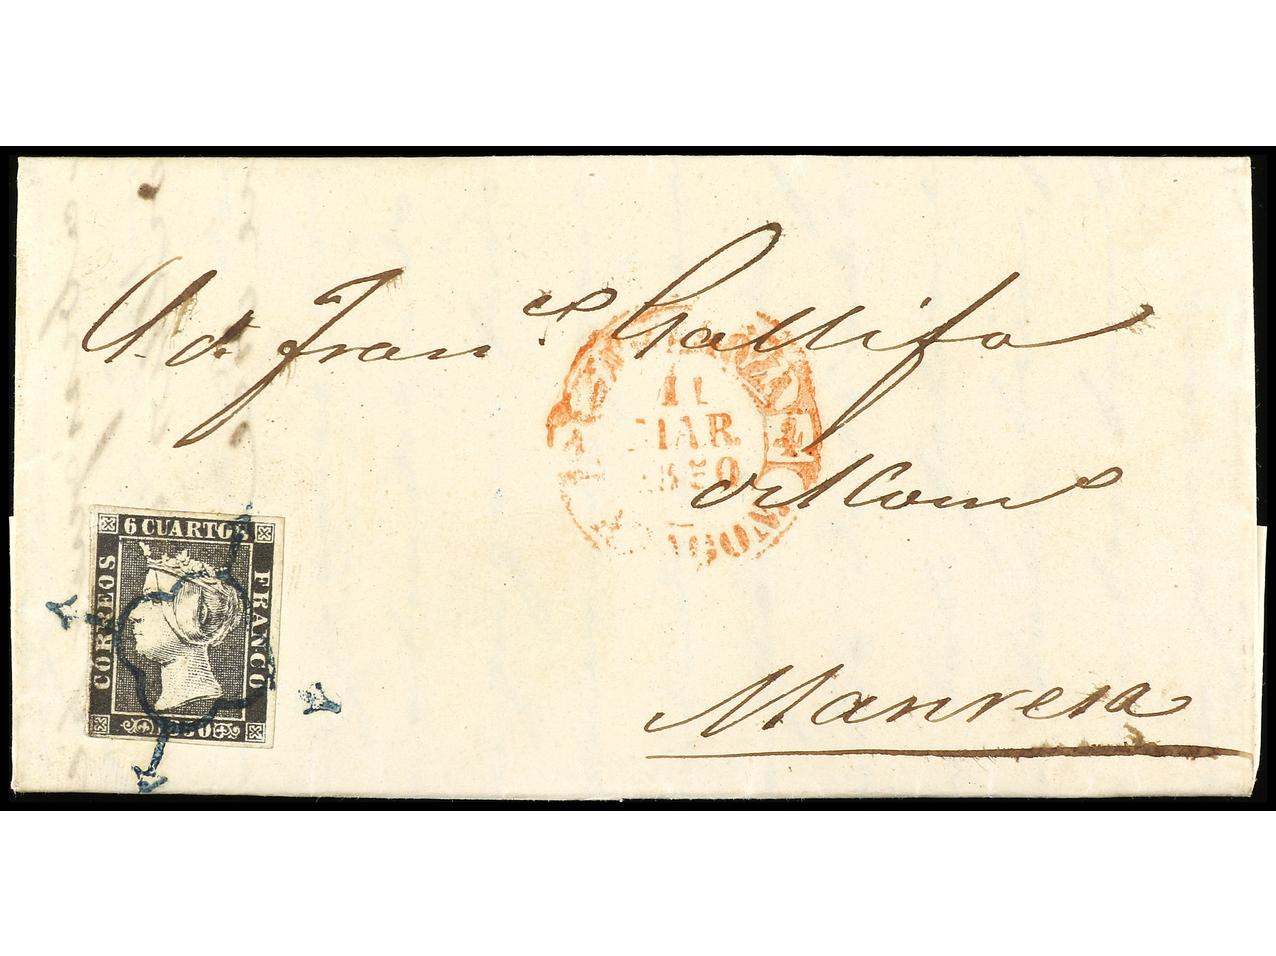 A. D. Fran.co Gallifa
del Com.o
Manresa
11
MAR.
1850
4
6 CUARTOS
CORREOS
FRANCO
1850